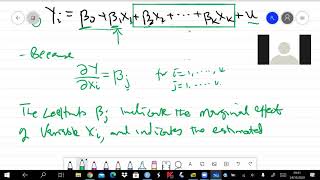 Yi = β0 + β1x1 + β2x2 + ... + βkxk + u
- Because
∂Y/∂xi = βj for i=1, ..., n
j=1, ..., k.
The βj indicate the marginal effect
of variable Xi, and indicates the estimated